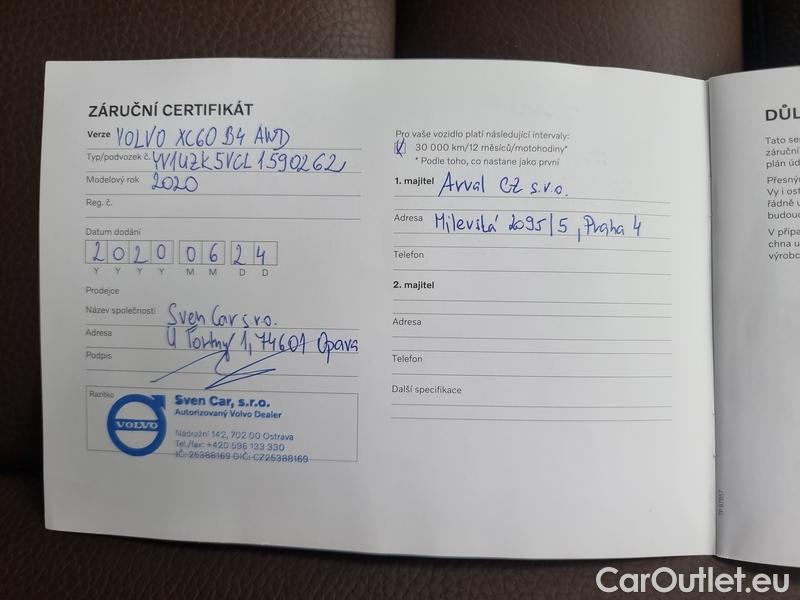 ZÁRUČNÍ CERTIFIKÁT
Verze VOLVO XC60 B4 AWD
Typ/podvozek č. YV1UZK5VCL1590262
Modelový rok 2020
Reg. č.
Datum dodání
2 0 2 0 0 6 2 4
Y Y Y Y M M D D
Prodejce
Název společnosti Sven Car s.r.o.
Adresa U 1, 74601 Opava
Podpis
Razítko
VOLVO
Sven Car, s.r.o.
Autorizovaný Volvo Dealer
Nádražní 142, 702 00 Ostrava
Tel./fax: +420 596 133 330
IČ: 25388169 DIČ: CZ25388169
Pro vaše vozidlo platí následující intervaly:
30 000 km/12 měsíců/motohodiny*
* Podle toho, co nastane jako první
1. majitel Arval CZ s.r.o.
Adresa Milevská 2095/5, Praha 4
Telefon
2. majitel
Adresa
Telefon
Další specifikace
DŮL
Tato se
záruční
plán úd
Přesným
Vy i ost
řádně u
budouc
V přípa
chna u
výrobc
CarOutlet.eu